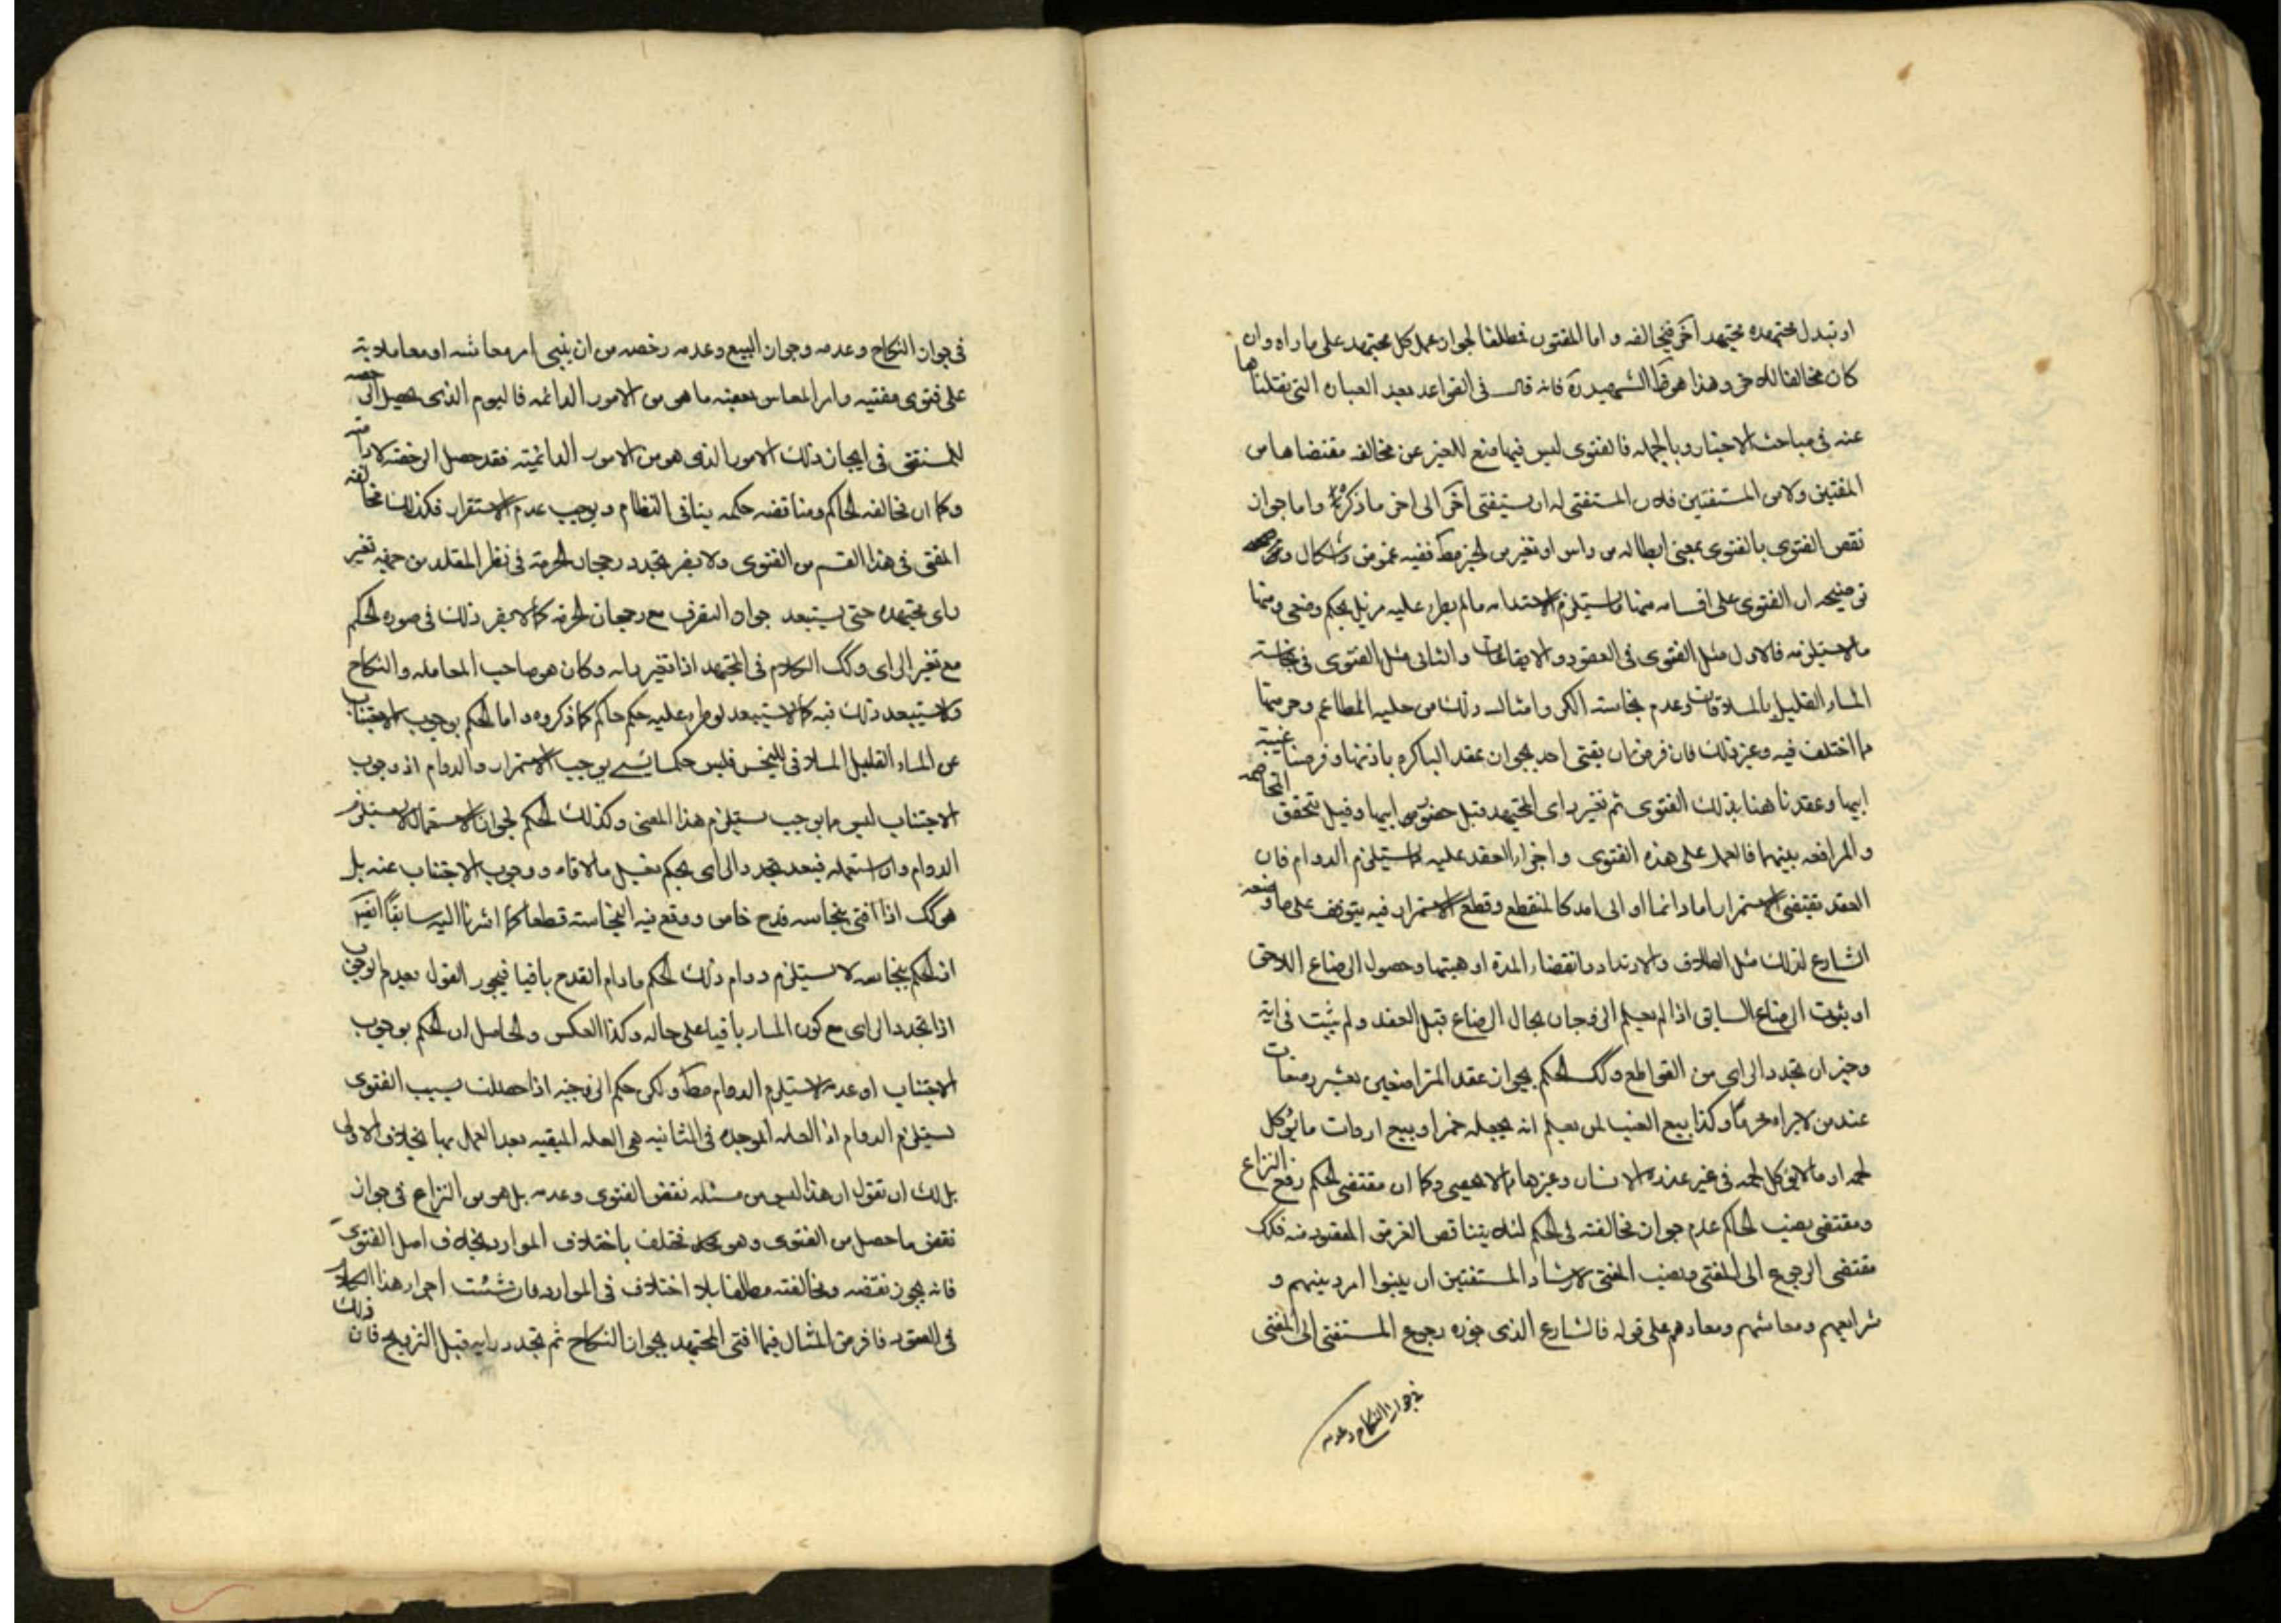 او تبدل مجتهده بمجتهد آخر فيخالفه و اما المفتون فمطلقا لجواز عمل كل مجتهد على ما راه وان
كان مخالفا للاخر وهذا هو الشهيد ره فانه قال فى القواعد بعد العباره التى نقلناها
عنه فى مباحث الاجتهاد وبالجمله فالفتوى ليس فيها منع للغير عن مخالفه مقتضاها من
المفتين ولا من المستفتين فلان المستفتى له ان يستفتى آخر الى اخر ما ذكره و اما جواز
نقص الفتوى بالفتوى بمعنى ابطاله من راس او تغير من الحين ففيه غموض واشكال
توضيحه ان الفتوى على اقسام منها ما يستلزم الاستدامه مالم يطرء عليه مزيل بحكم وضعى ومنها
مالا يستلزمه فالاول مثل الفتوى فى العقود والايقاعات والثانى مثل الفتوى فى نجاسته
الماء القليل بالملاقات وعدم نجاسته الكر وامثال ذلك من حليه المطاعم وحرمتها
ما اختلف فيه وغير ذلك فان فرض ان يفتى احد بجواز عقد الباكره باذنها وفرضنا غيبة
ابيها وعقدناها هنا بذلك الفتوى ثم تغير راى المجتهد قبل حضور ابيها وقبل تحقق التخاصم
و المرافعه بينهما فالعمل على هذه الفتوى و اجراء العقد عليه مما يستلزم الدوام فان
العقد يقتضى الاستمرار اما دائما او الى امد كالمنقطع وقطع الاستمرار فيه يتوقف على ما وضعه
الشارع لذلك مثل الطلاق والارتداد وانقضاء المدة او هبتها وحصول الرضاع اللاحق
او ثبوت الرضاع السابق اذا لم يعلم الزوجان بحال الرضاع قبل العقد و لم يثبت فى اية
وخبر ان تجدد الراى من القواطع وكك الحكم بجواز عقد المتراضعين بعشر رضعات
عند من لا يراه محرما وكذا بيع العنب لمن يعلم انه يجعله خمرا وبيع ارواث ما يؤكل
لحمه او مالا يؤكل لحمه فى غير عذره الانسان وغيرها مما لا يحصى وكما ان مقتضى الحكم رفع النزاع
ومقتضى نصب الحاكم عدم جواز مخالفته فى الحكم لئلا يتناقض الغرض المقصود منه فكك
مقتضى الرجوع الى المفتى ونصب المفتى لارشاد المستفتين ان يبنوا امر دينهم و
شرايعهم ومعاشهم ومعادهم على قوله فالشارع الذى جوزه رجوع المستفتى الى المفتى
فى جواز النكاح وعدمه
فى جواز النكاح وعدمه وجواز البيع وعدمه رخصه من ان يبنى امر معاشه او معاملاته
على فتوى مفتيه وامر المعاش بعضه ما هو من الامور الدائمه فاليوم الذى حصل الرخصه
للمستفتى فى ايجاد ذلك الامر الذى هو من الامور الدائميته فقد حصل الرخصة لادامته
وكما ان مخالفه الحاكم ومناقضه حكمه ينافى النظام ويوجب عدم الاستقرار فكذلك مخالفه
المفتى فى هذا القسم من الفتوى ولا يضر تجدد رجحان الحرمة فى نظر المقلد من جهه تغير
راى مجتهده حتى يستبعد جواز التصرف مع رجحان الحرمه كما لا يضر ذلك فى صوره الحكم
مع تغير الراى وكك الكلام فى المجتهد اذا تغير رايه وكان هو صاحب المعامله و النكاح
ولا يستبعد ذلك فيه كما لا يستبعد لو طرء عليه حكم حاكم كما ذكروه و اما الحكم بوجوب الاجتناب
عن الماء القليل الملاقى للنجس فليس حكما بشئ يوجب الاستمرار والدوام اذ وجوب
الاجتناب ليس مما يوجب يستلزم هذا المعنى وكذلك الحكم بجواز الاستعمال لا يستلزم
الدوام وان استعمله فبعد تجدد الراى يحكم بغسل مالاقاه ووجوب الاجتناب عنه بل
هو كك اذا افتى بنجاسه قدح خاص ووقع فيه النجاسته قطعا كما اشرنا اليه سابقا
ان الحكم بنجاسه لا يستلزم دوام ذلك الحكم مادام القدح باقيا فيجوز القول بعدم الوجوب
اذا تجدد الراى مع كون الماء باقيا على حاله وكذا العكس والحاصل ان الحكم بوجوب
الاجتناب او عدمه لا يستلزم الدوام ولكن حكم الزوجيه اذا حصلت بسبب الفتوى
يستلزم الدوام اذ العله الموجده فى الثانيه هى العله المبقيه بعد العمل بها بخلاف الاولى
بل لك ان تقول ان هذا ليس من مسئله نقض الفتوى وعدمه بل هو من النزاع فى جواز
نقض ما حصل من الفتوى وهو مختلف باختلاف الموارد بخلاف اصل الفتوى
فانه يجوز نقضه ومخالفته مطلقا بلا اختلاف فى الموارد فان شئت اجراء هذا الكلام
فى العقود فافرض المثال فيما افتى المجتهد بجواز النكاح ثم تجدد رايه قبل التزويج فان ذلك